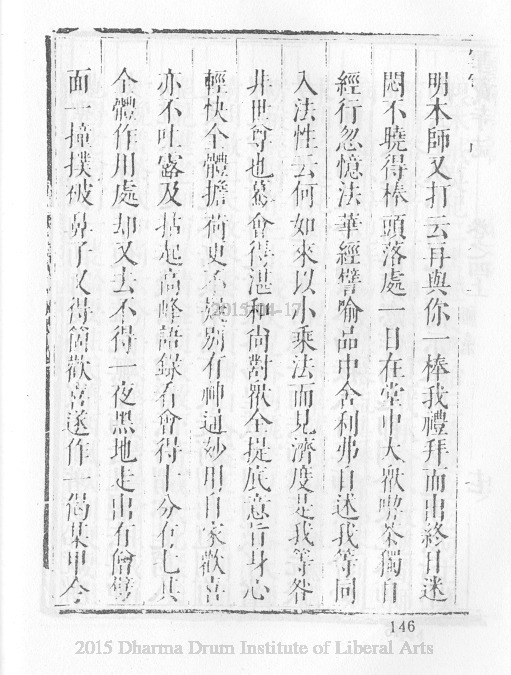 明本師又打云再與你一棒我禮拜而出終日迷
悶不曉得棒頭落處一日在堂中大眾喫茶獨自
經行忽憶法華經譬喻品中舍利弗自述我等同
入法性云何如來以小乘法而見濟度是我等咎
非世尊也驀會得湛和尚對眾全提底意旨身心
輕快全體擔荷更不疑別有神通妙用自家歡喜
亦不吐露及拈起高峰語錄看會得十分有七其
全體作用處却又去不得一夜黑地走出有僧劈
面一撞撲破鼻了又得箇歡喜遂作一偈某甲今
2015-04-17
146
2015 Dharma Drum Institute of Liberal Arts